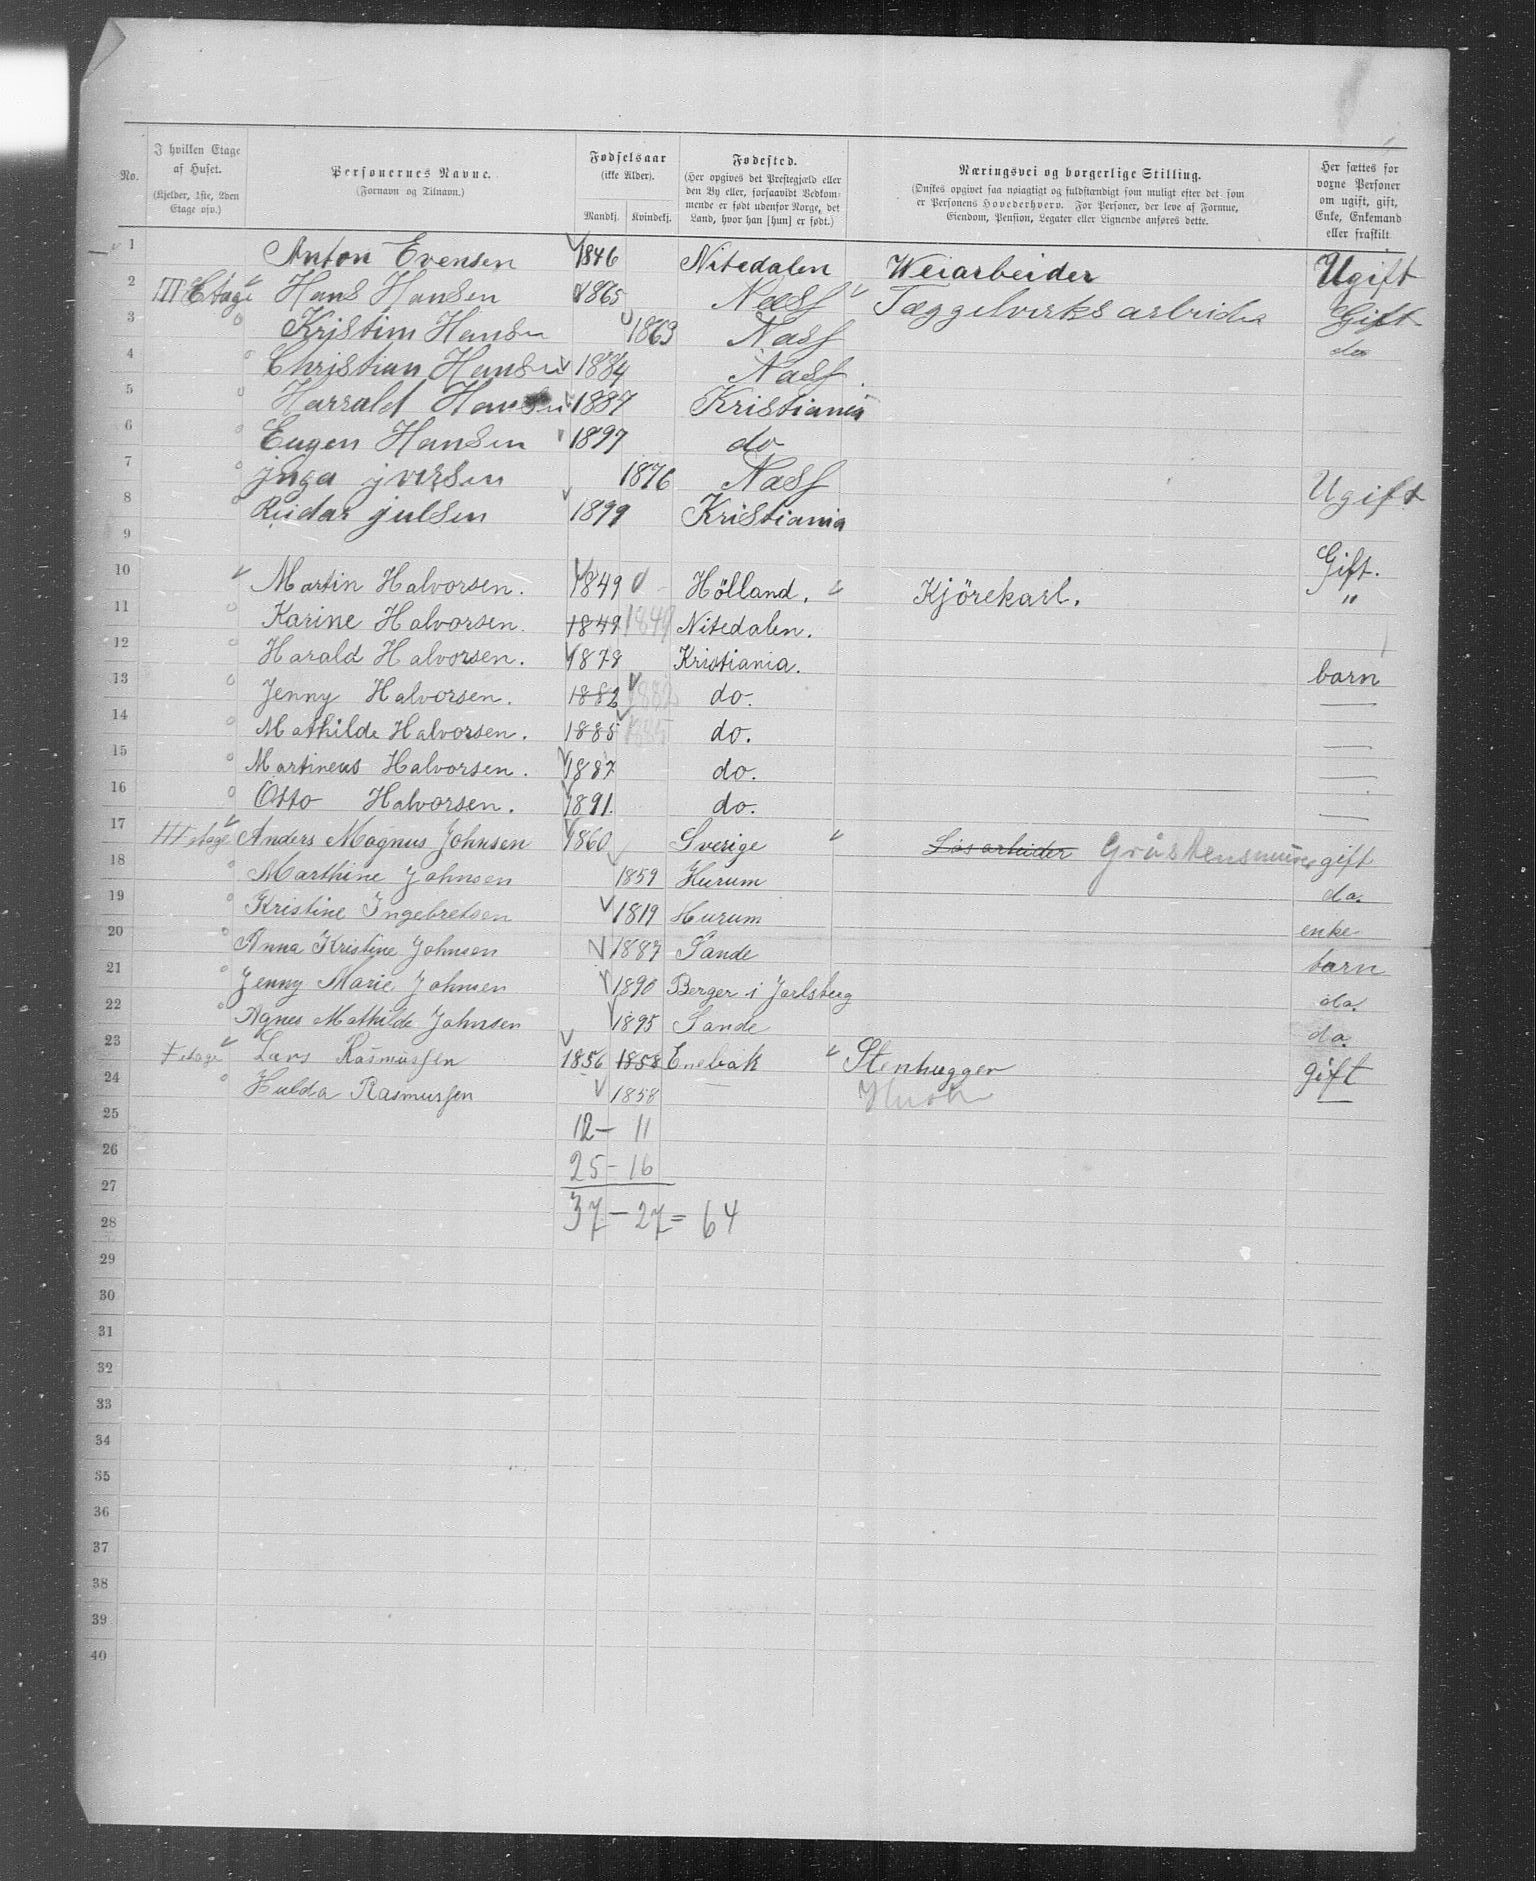 No.
I hvilken Etage af Huset. (Kjelder, 1ste, 2den Etage osv.)
Personernes Navne. (Fornavn og Tilnavn.)
Fødselsaar (ikke Alder). Mandkj. Kvindekj.
Fødested. (Her opgives det Prestegjæld eller den By eller, forsaavidt Vedkommende er født udenfor Norge, det Land, hvor han [hun] er født.)
Næringsvei og borgerlige Stilling. (Ønskes opgivet saa nøiagtigt og fuldstændigt som muligt efter det som er Personens Hovederhverv. For Personer, der leve af Formue, Eiendom, Pension, Legater eller Lignende anføres dette.
Her sættes for voxne Personer om ugift, gift, Enke, Enkemand eller fraskilt
1 Anton Evensen 1846 Nitedalen Weiarbeider Ugift
2 III Etage Hans Hansen 1865 Næss Tæggelverksarbeider Gift
3 Kristin Hansen 1863 Næss do
4 Christian Hansen 1884 Næss
5 Harrald Hansen 1887 Kristiania
6 Eugen Hansen 1897 do
7 jnga jversen 1876 Næss Ugift
8 Reidar julsen 1899 Kristiania
9
10 Martin Halvorsen. 1849 Hölland. Kjörekarl. Gift.
11 Karine Halvorsen. 1849 1849 Nitedalen. "
12 Harald Halvorsen. 1878 Kristiania.
13 Jenny Halvorsen. 1882 1882 do. barn
14 Mathilde Halvorsen. 1885 1885 do. —
15 Martineus Halvorsen. 1887 do. —
16 Otto Halvorsen. 1891. do. —
17 III etage Anders Magnus Johnsen 1860 Sverige Løsarbeider Gråstensmurer gift
18 Marthine Johnsen 1859 Hurum do.
19 Kristine Ingebretsen 1819 Hurum enke
20 Anna Kristine Johnsen 1887 Sande barn
21 Jenny Marie Johnsen 1890 Berger i Jarlsberg do.
22 Agnes Mathilde Johnsen 1895 Sande do.
23 I etage Lars Rasmussen 1856 1858 Enebak Stenhugger gift
24 Hulda Rasmussen 1858 —
25 12 — 11
26 25 — 16
27
28 37 — 27 = 64
29
30
31
32
33
34
35
36
37
38
39
40